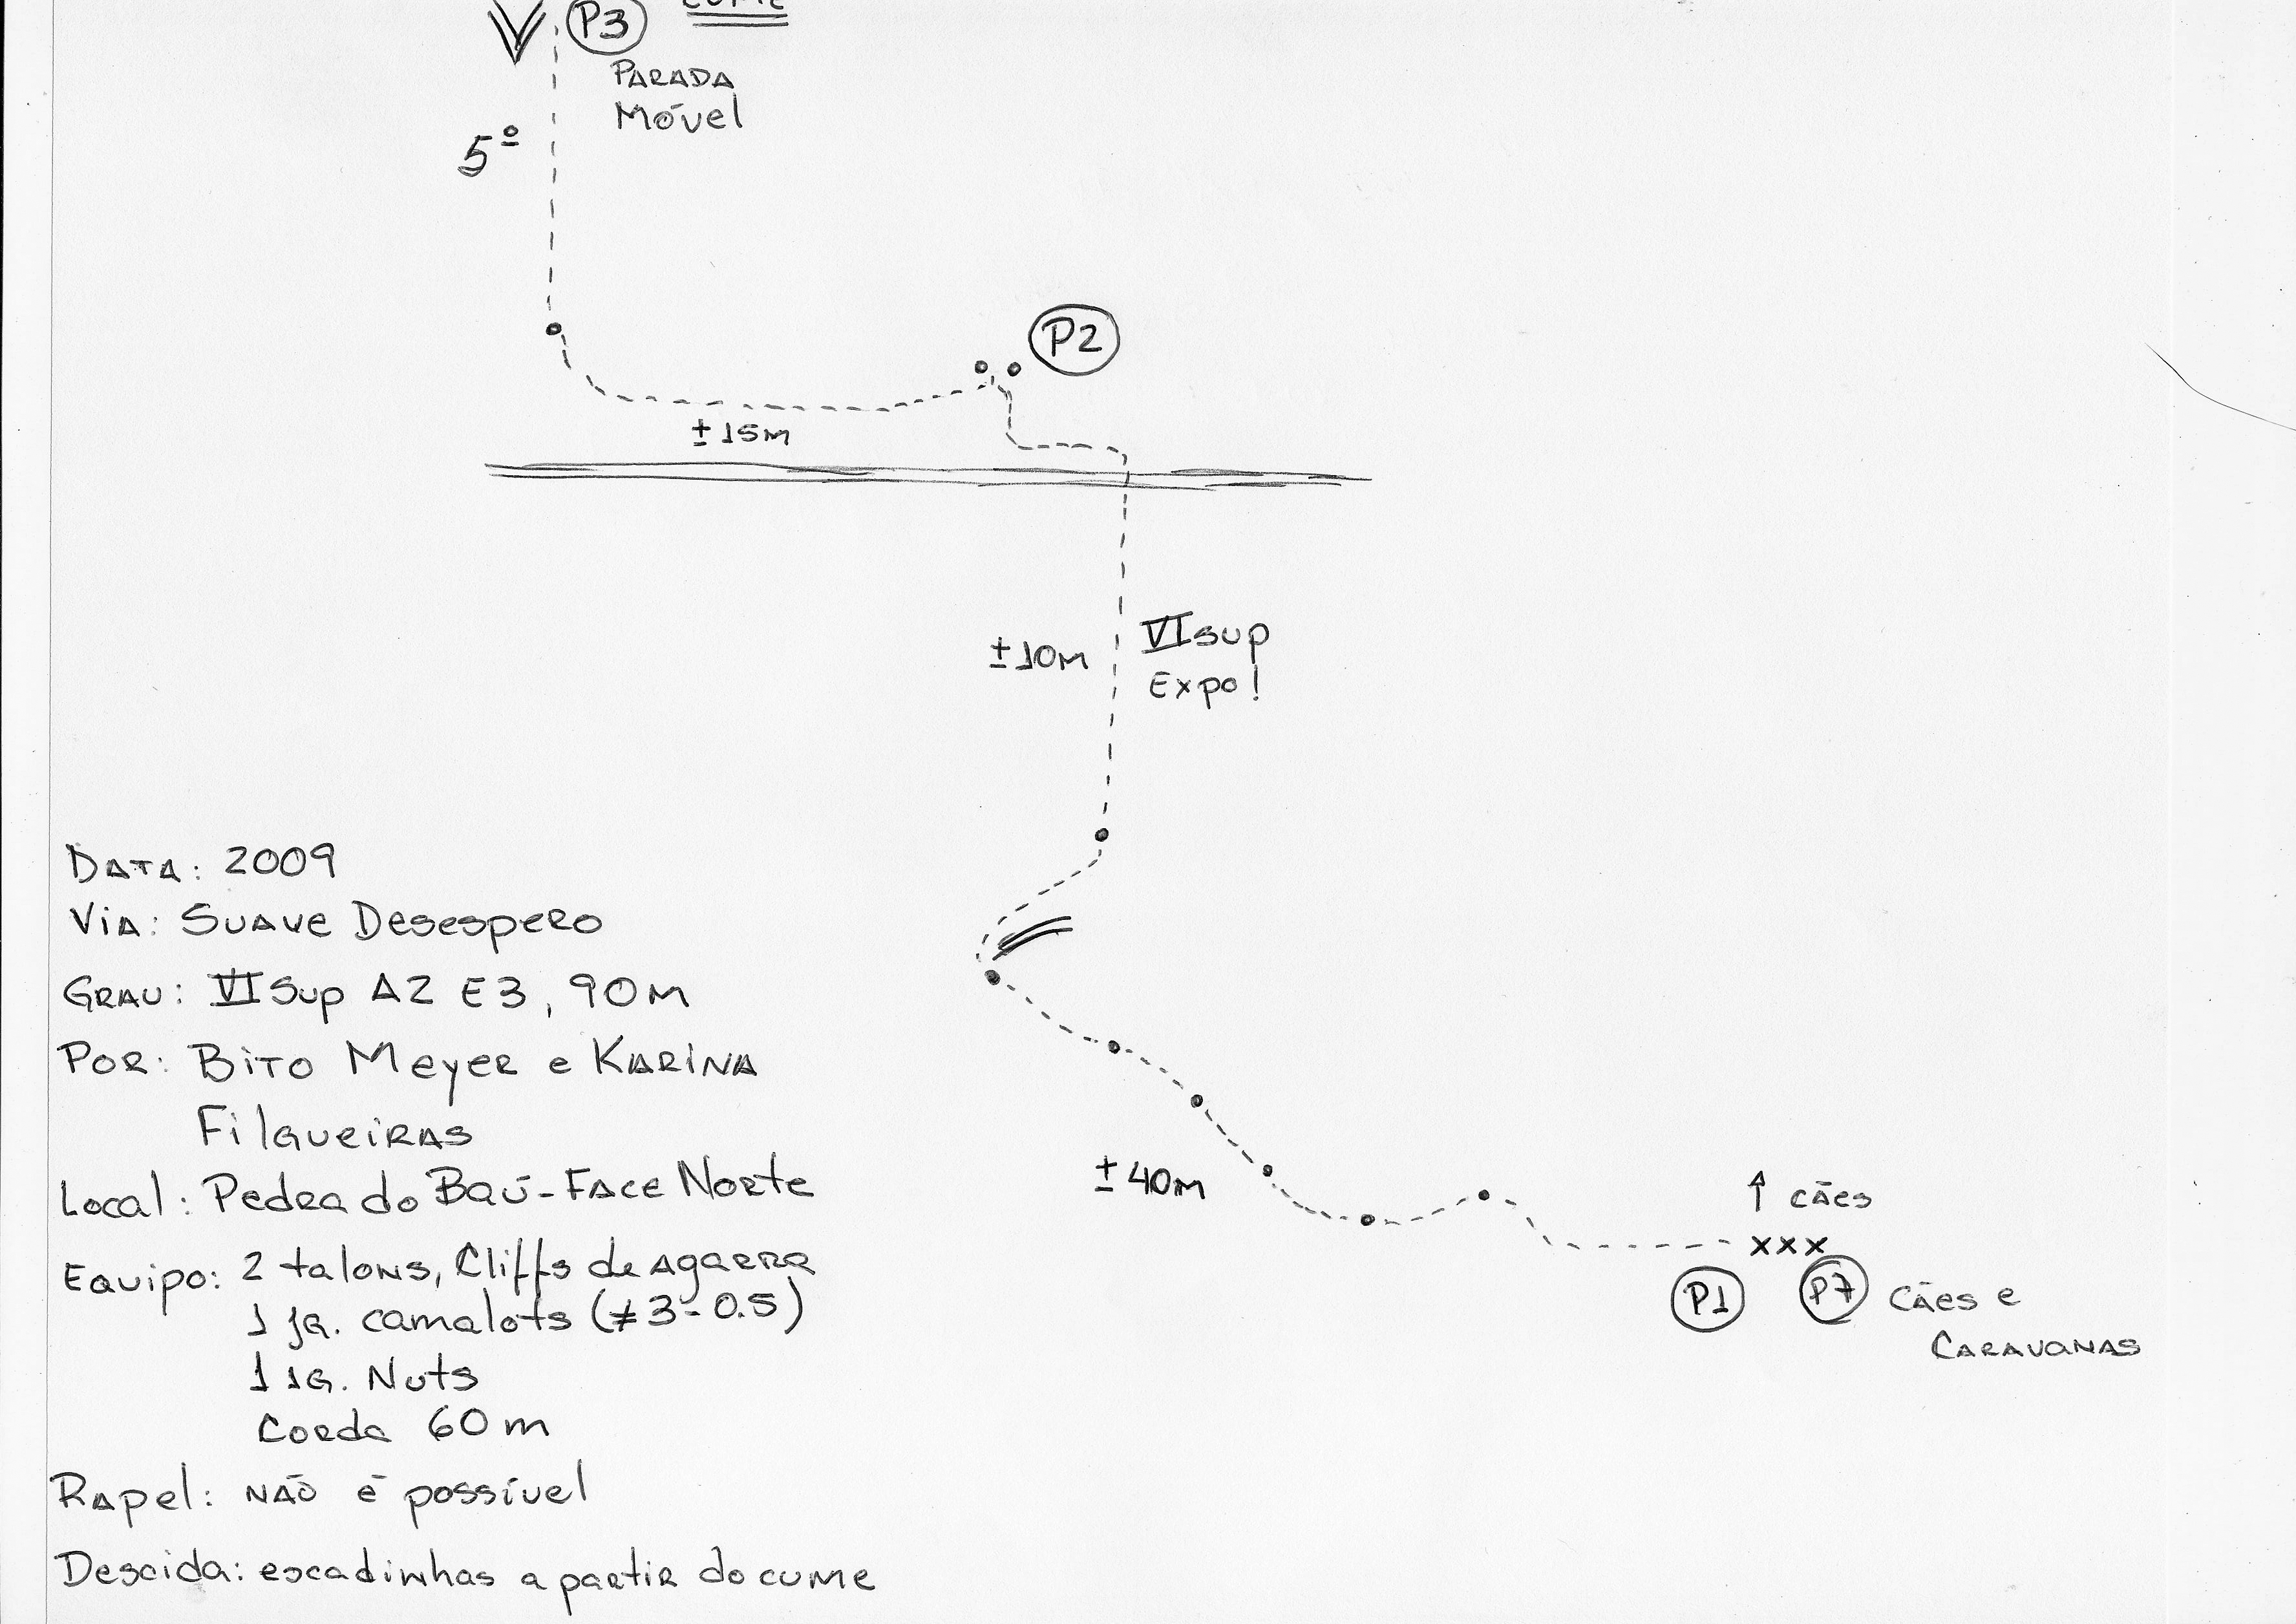 P3
PARADA
Móvel
5º
P2
±15m
±10m
VIsup
Expo!
Data: 2009
Via: Suave Desespero
Grau: VI Sup A2 E3, 90m
Por: Bito Meyer e Karina
Filgueiras
Local: Pedra do Baú - Face Norte
Equipo: 2 talons, Cliffs de agarra
1 jg. camalots (≠3-0.5)
1 jg. Nuts
Corda 60m
Rapel: não é possível
Descida: escadinhas a partir do cume
±40m
↑ cães
xxx
P1
P7 Cães e
Caravanas